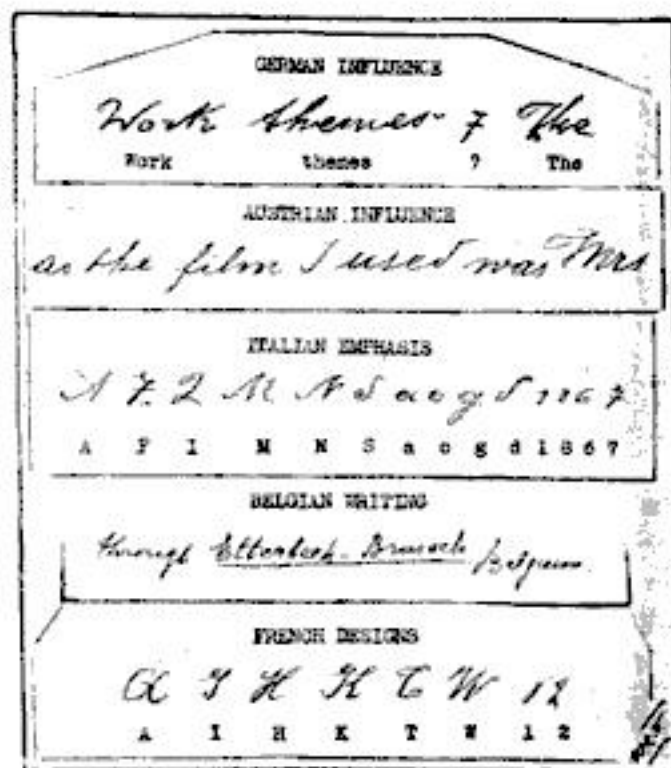 GERMAN INFLUENCE
Work themes 7 The
Work themes ? The
AUSTRIAN INFLUENCE
as the film I used was Mrs
ITALIAN EMPHASIS
A F I M N S a o g d 1 8 6 7
A F I M N S a o g d 1 8 6 7
BELGIAN WRITING
through Etterbeek - Brussels Belgium
FRENCH DESIGNS
A I H K T W 12
A I H K T W 1 2